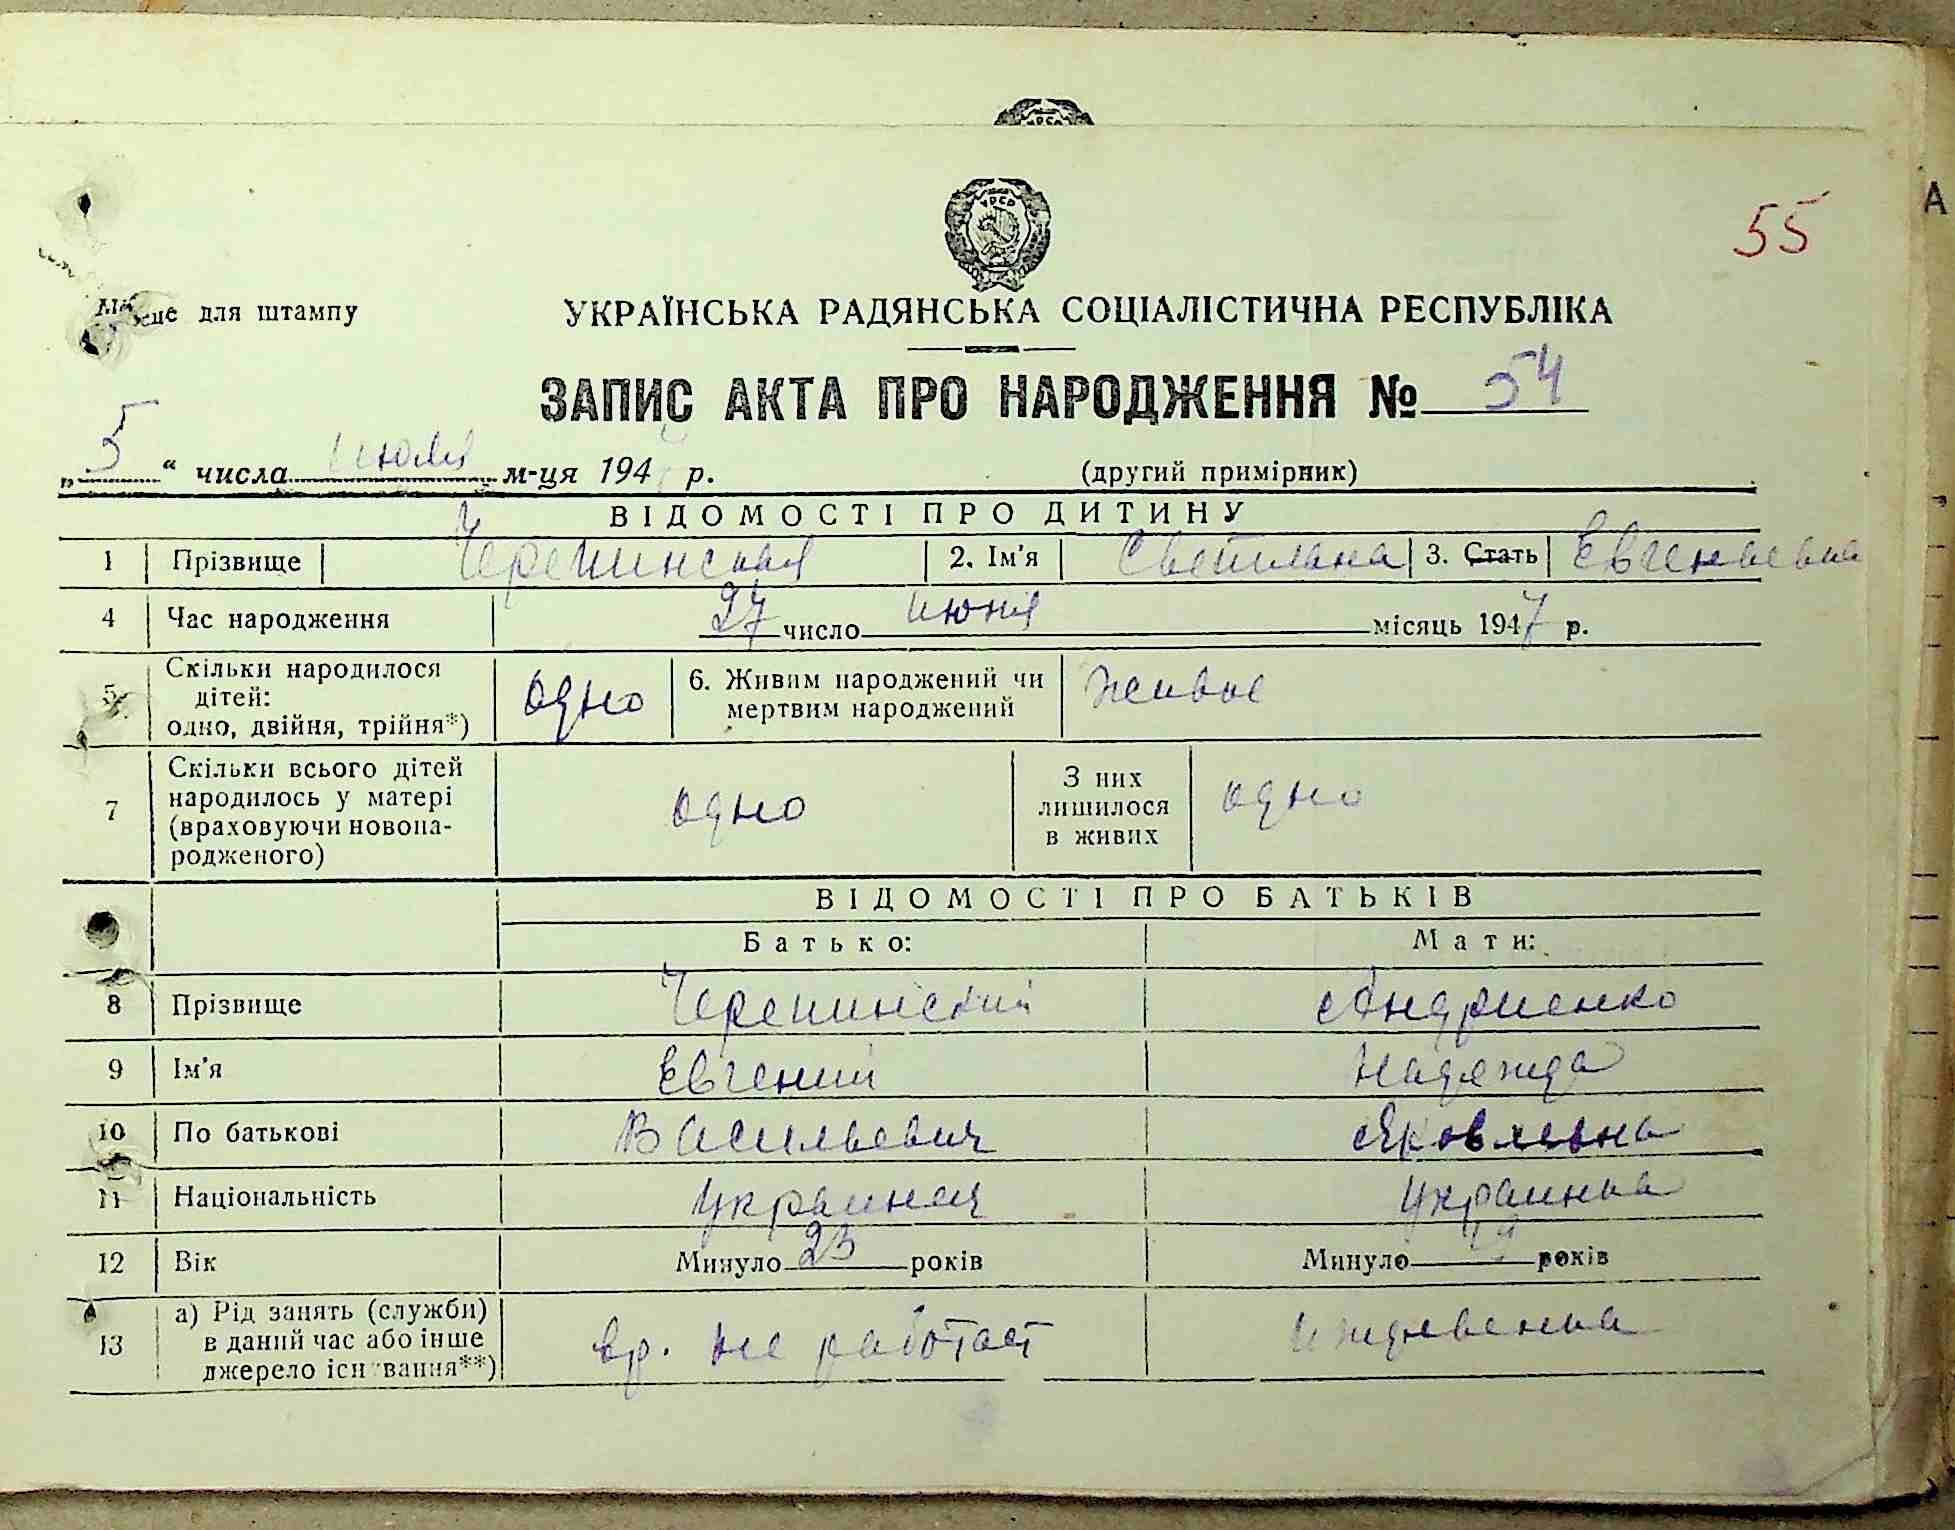 УРСР
55
А
Місце для штампу
УКРАЇНСЬКА РАДЯНСЬКА СОЦІАЛІСТИЧНА РЕСПУБЛІКА
ЗАПИС АКТА ПРО НАРОДЖЕННЯ № 54
„5“ числа июля м-ця 194 р. (другий примірник)
ВІДОМОСТІ ПРО ДИТИНУ
1 Прізвище Черепинская 2. Ім'я Светлана 3. Стать Евгеньевна
4 Час народження 27 число июня місяць 1947 р.
5 Скільки народилося дітей: одно, двійня, трійня*) одно 6. Живим народжений чи мертвим народжений живое
7 Скільки всього дітей народилось у матері (враховуючи новонародженого) одно З них лишилося в живих одно
ВІДОМОСТІ ПРО БАТЬКІВ
Батько: Мати:
8 Прізвище Черепинский Андриенко
9 Ім'я Евгений Надежда
10 По батькові Васильевич Яковлевна
11 Національність украинец украинка
12 Вік Минуло 23 років Минуло років
13 а) Рід занять (служби) в даний час або інше джерело існування**) вр. не работает иждивенка